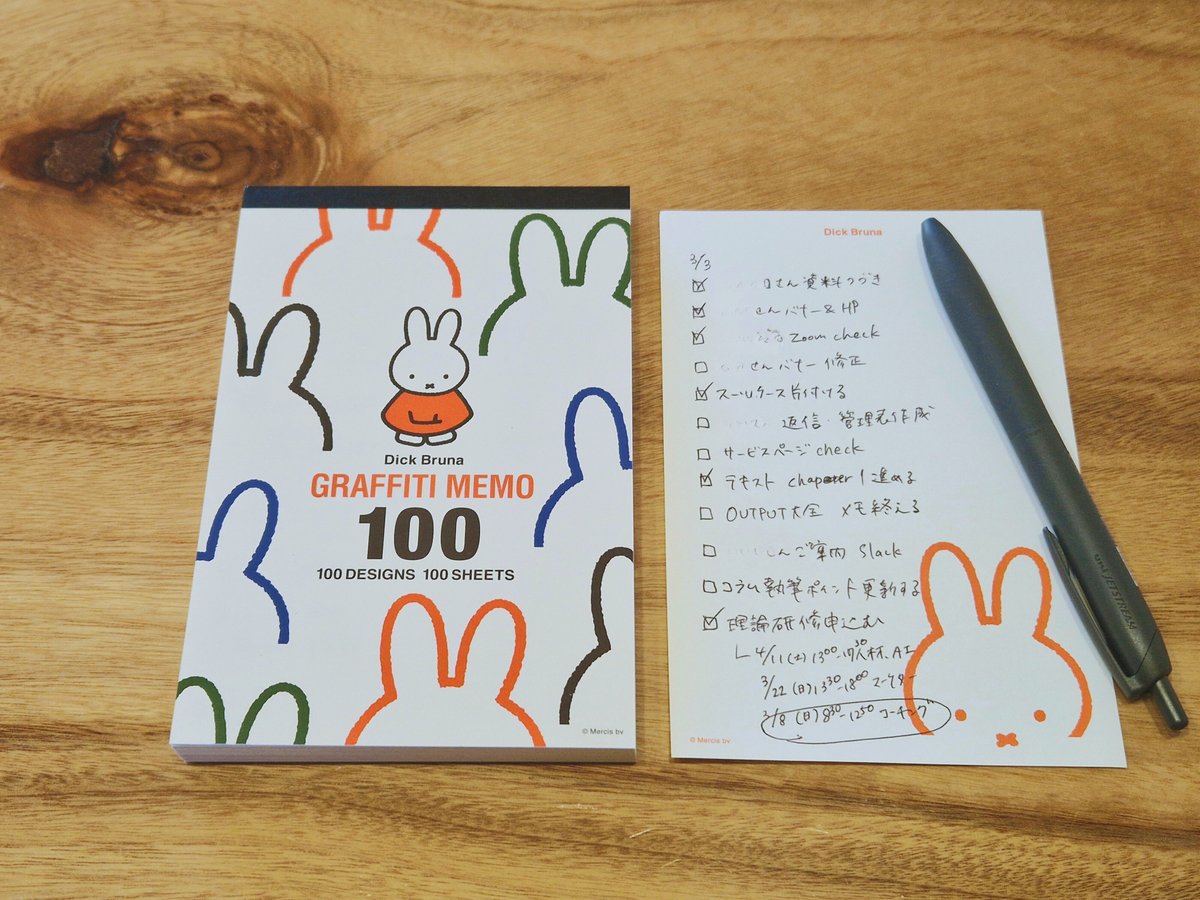 Dick Bruna
GRAFFITI MEMO
100
100 DESIGNS 100 SHEETS
© Mercis bv
Dick Bruna
3/3
さん資料つづき
さんバナー & HP
Zoom check
さんバナー 修正
スーツケース片付ける
返信・管理表作成
サービスページ check
テキスト chapter 1 進める
OUTPUT大全 メモ終える
さんご案内 Slack
コラム執筆ポイント更新する
理論研修申込む
4/11 (土) 13:00-17:30 人材、AI
3/22 (日) 13:30-18:00 マーケター
3/8 (日) 8:30-12:50 コーチング
© Mercis bv
uni JETSTREAM